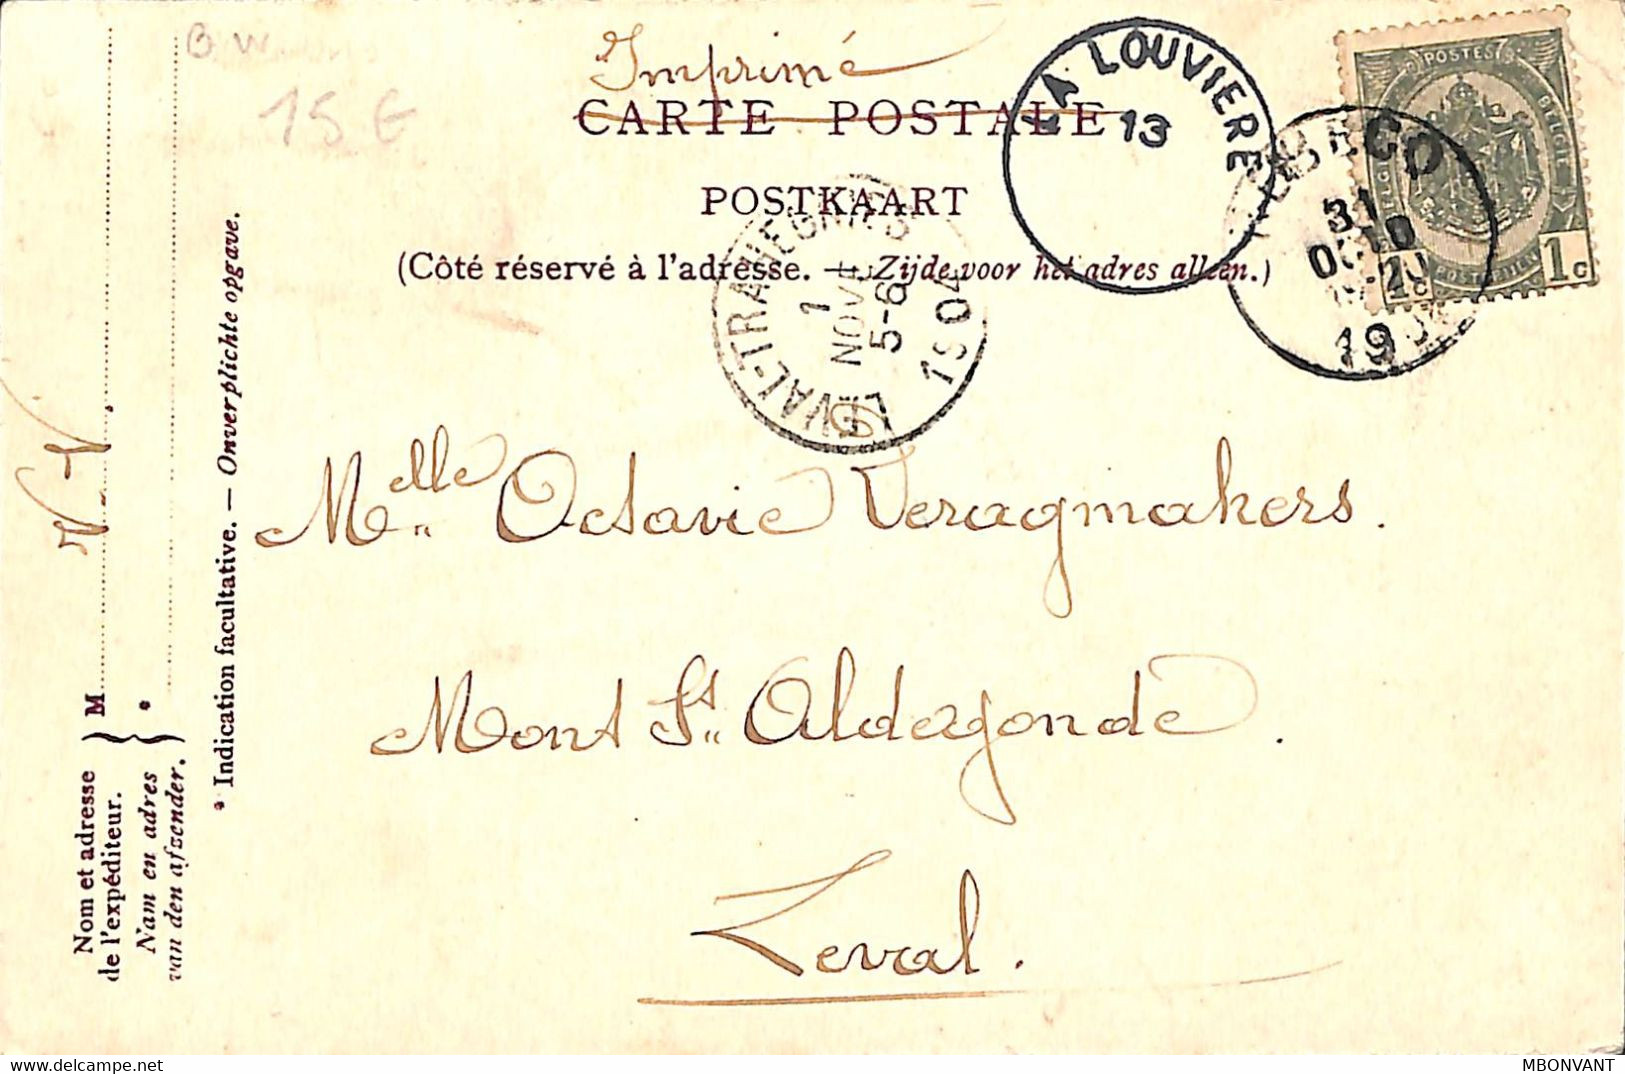 B W
15 €
Imprimé
CARTE POSTALE
POSTKAART
(Côté réservé à l'adresse. — Zijde voor het adres alleen.)
LA LOUVIERE
13
31
19
POSTES
BELGIE
BELGIQUE
POSTERIJEN
1c
LEVAL-TRAHEGNIES
1
NOVE
5-6
1904
Melle Octavie Veragmakers.
Mont St. Aldegonde.
Leval.
Nom et adresse
de l'expéditeur.
M
Nam en adres
van den afzender.
*
* Indication facultative. — Onverplichte opgave.
delcampe.net
MBONVANT